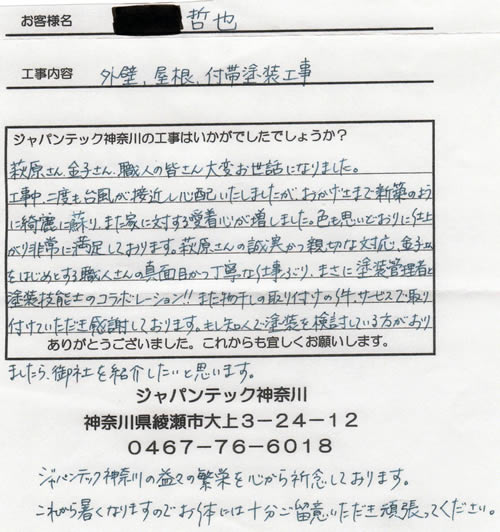 お客様名 哲也
工事内容 外壁、屋根、付帯塗装工事
ジャパンテック神奈川の工事はいかがでしたでしょうか？
萩原さん、金子さん、職人の皆さん大変お世話になりました。
工事中、二度も台風が接近し心配いたしましたが、おかげさまで新築のよう
に綺麗に蘇り、また家に対する愛着心が増しました。色も思いどおりに仕上
がり非常に満足しております。萩原さんの誠実かつ親切な対応、金子さん
をはじめとする職人さんの真面目かつ丁寧な仕事ぶり、まさに塗装管理者と
塗装技能士のコラボレーション!! また物干しの取り付けの件、サービスで取り
付けていただき感謝しております。もし知人で塗装を検討している方がおり
ありがとうございました。これからも宜しくお願いします。
ましたら、御社を紹介したいと思います。
ジャパンテック神奈川
神奈川県綾瀬市大上3-24-12
0467-76-6018
ジャパンテック神奈川の益々の繁栄を心から祈念しております。
これから暑くなりますのでお体には十分ご留意いただき頑張ってください。